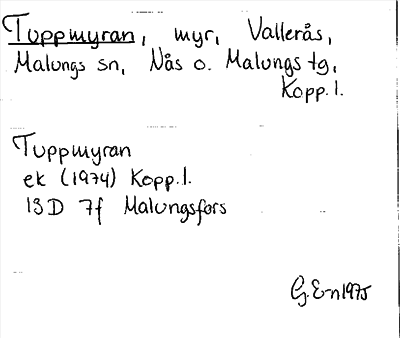 Tuppmyran, myr, Vallerås,
Malungs sn, Nås o. Malungs tg,
Kopp. l.
Tuppmyran
ek (1974) Kopp. l.
13D 7f Malungsfors
G. E-n 1975